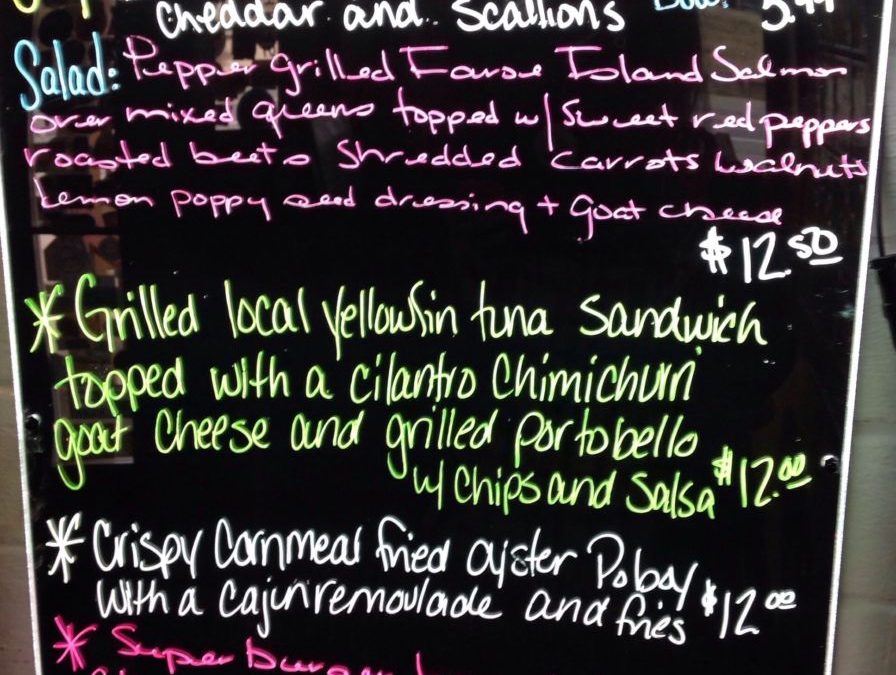 Cheddar and Scallions 5.99
Salad: Pepper grilled Faroe Island Salmon
over mixed greens topped w/ Sweet red peppers
roasted beets Shredded Carrots Walnuts
Lemon poppy seed dressing + Goat cheese
$12.50
*Grilled local yellowfin tuna sandwich
topped with a cilantro Chimichurri
goat cheese and grilled portobello
w/ chips and Salsa $12.00
*Crispy Cornmeal fried oyster Poboy
with a cajun remoulade and fries $12.00
*Super burger